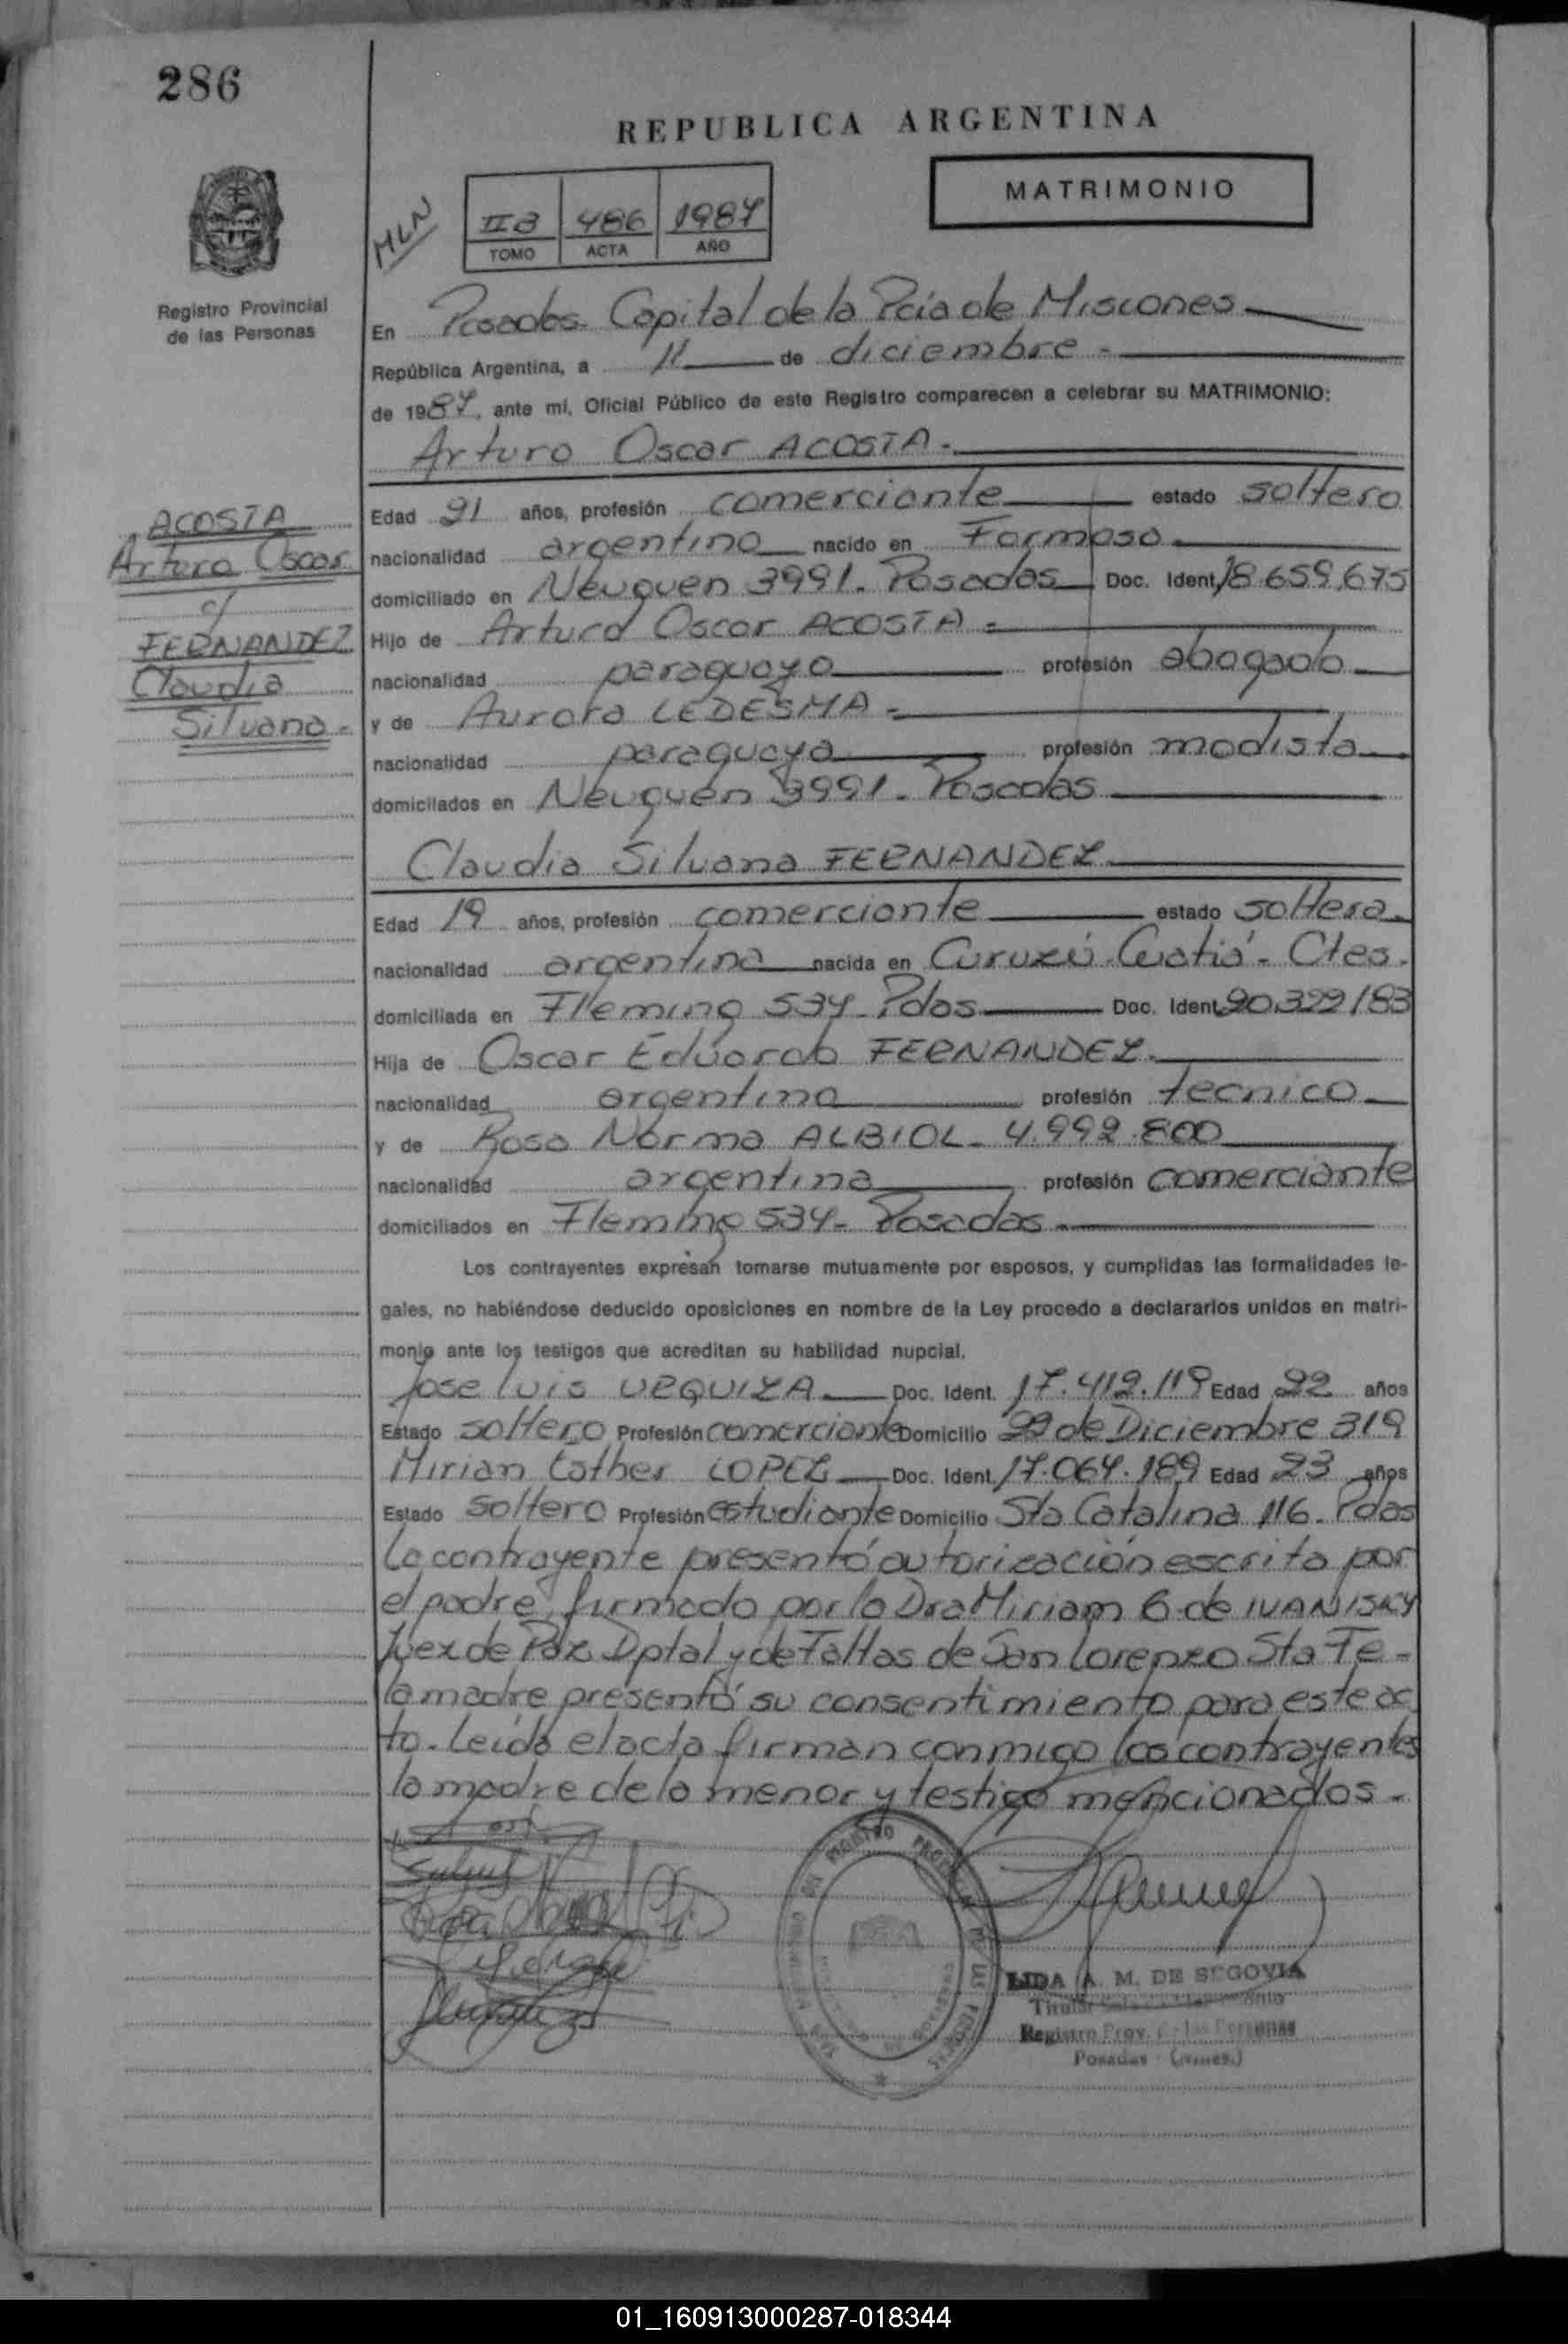 286
REPUBLICA ARGENTINA
MATRIMONIO
MLN
IIB 486 1987
TOMO ACTA AÑO
Registro Provincial
de las Personas
En Posadas Capital de la Pcia de Misiones
República Argentina, a 11 de diciembre -
de 1987, ante mí, Oficial Público de este Registro comparecen a celebrar su MATRIMONIO:
Arturo Oscar ACOSTA -
ACOSTA
Arturo Oscar
c/
FERNANDEZ
Claudia
Silvana -
Edad 21 años, profesión comerciante estado soltero
nacionalidad argentino nacido en Formosa -
domiciliado en Neuquen 3991 - Posadas Doc. Ident. 18.659.675
Hijo de Arturo Oscar ACOSTA -
nacionalidad paraguayo profesión abogado
y de Aurora LEDESMA -
nacionalidad paraguaya profesión modista
domiciliados en Neuquén 3991 - Posadas
Claudia Silvana FERNANDEZ
Edad 19 años, profesión comerciante estado soltera
nacionalidad argentina nacida en Curuzú Cuatiá - Ctes.
domiciliada en Fleming 534 - Pdas Doc. Ident. 20.322183
Hija de Oscar Eduardo FERNANDEZ -
nacionalidad argentino profesión tecnico
y de Rosa Norma ALBIOL - 4.992.800
nacionalidad argentina profesión comerciante
domiciliados en Fleming 534 - Posadas -
Los contrayentes expresan tomarse mutuamente por esposos, y cumplidas las formalidades le-
gales, no habiéndose deducido oposiciones en nombre de la Ley procedo a declararlos unidos en matri-
monio ante los testigos que acreditan su habilidad nupcial.
Jose Luis URQUIZA Doc. Ident. 17.412.119 Edad 22 años
Estado soltero Profesión comerciante Domicilio 22 de Diciembre 319
Mirian Esther LOPEZ Doc. Ident. 17.064.189 Edad 23 años
Estado soltero Profesión estudiante Domicilio Sta Catalina 116 - Pdas
La contrayente presentó autorización escrita por
el padre, firmado por la Dra Miriam G. de IVANISKY
Juez de Paz Dptal y de Faltas de San Lorenzo Sta Fe -
la madre presentó su consentimiento para este ac
to - Leída el acta firman conmigo los contrayentes
la madre de la menor y testigo mencionados -
LIDA A. M. DE SEGOVIA
Titular
Registro Prov. de las Personas
Posadas (Mnes.)
01_160913000287-018344